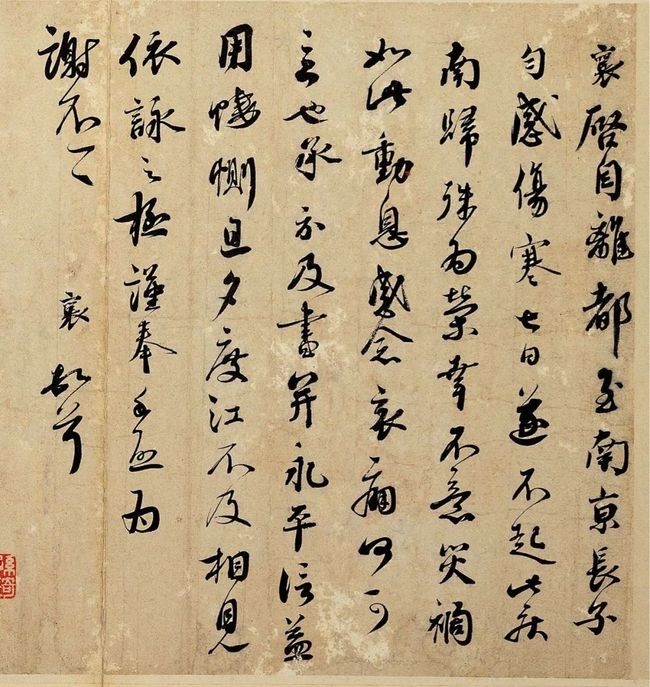 襄啓自離都至南京長子
勻感傷寒七日遂不起此疾
南歸殊為榮幸不意災禍
如此動息感念哀痛何可
言也承示及書并永平信益
用悽惻旦夕度江不及相見
依詠之極謹奉手啓為
謝不一一
襄頓首